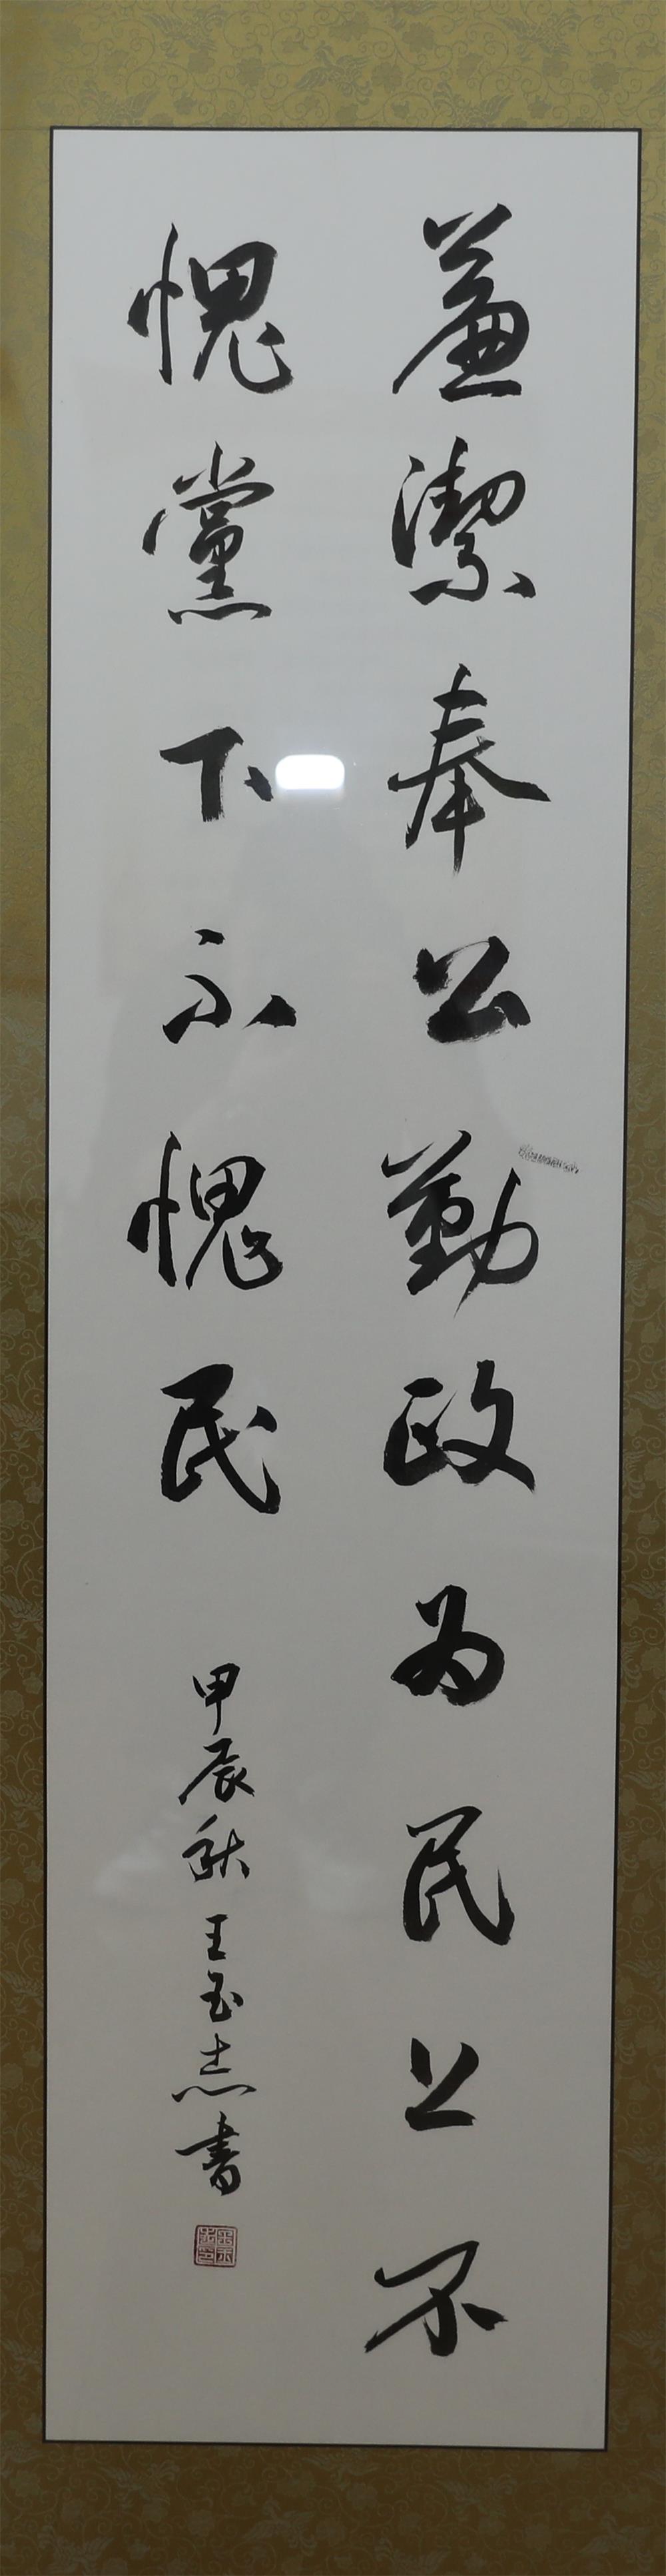 廉潔奉公勤政为民上不
愧黨下不愧民
甲辰秋王玉志書